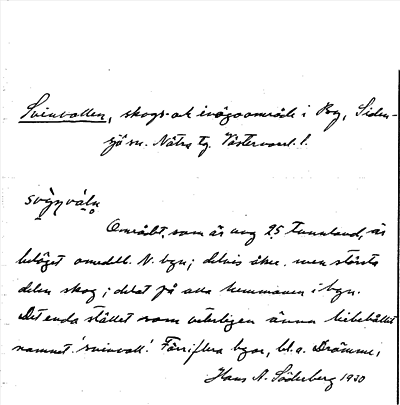 Svinvallen, skogs- ok inägoområde i By, Siden-
sjö sn. Nätra tg. Västernorrl. l.
Området, som är ung 25 tunnland, är
beläget omedelb. N. byn; delvis åker, men största
delen skog; delat på alla hemmanen i byn.
Det enda stället som veterligen ännu bibehållit
namnet 'svinvall'. Förr i flera byar, bl.a. Drömme,
Hans A. Söderberg 1930